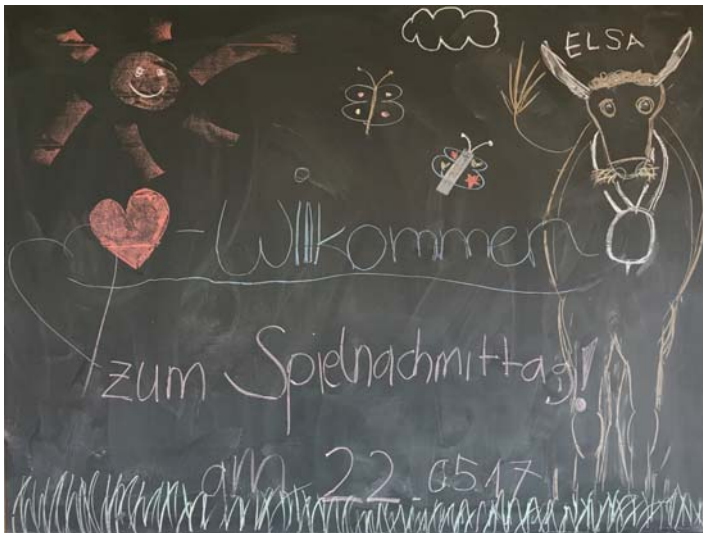 ELSA
-Willkommen
zum Spielnachmittag!
am 22.0517!